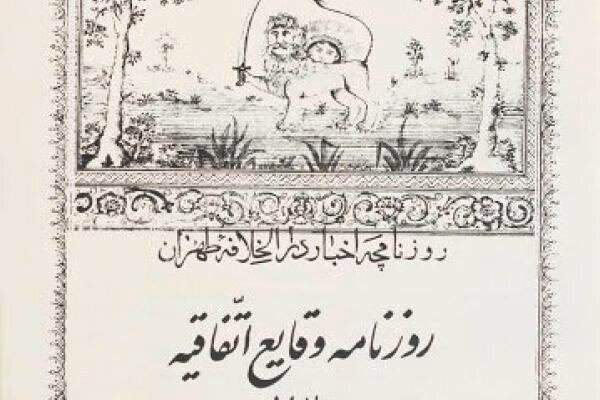 روزنامچه اخبار دارالخلافه طهران
روزنامه وقایع اتّفاقیه